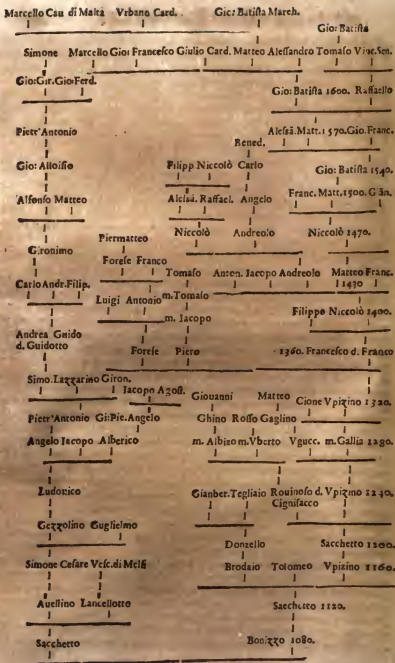 Marcello Cau di Malta Vrbano Card. Gio: Batista March.
Gio: Batista
Simone Marcello Gio: Francesco Giulio Card. Matteo Alessandro Tomaso Vinc. Sen.
Gio: Gir. Gio Ferd.
Gio: Batista 1600. Raffaello
Pietr'Antonio
Alessã. Matt. 1570. Gio. Franc.
Bened.
Gio: Alloisio
Filipp Niccolò Carlo
Gio: Batista 1540.
Alfonso Matteo
Alessã. Raffael. Angelo
Franc. Matt. 1500.
Niccolò Andreolo Niccolò 1470.
Piermatteo
Gironimo
Forese Franco
Tomaso Anton. Iacopo Andreolo Matteo Franc.
1430
Carlo Andr. Filip.
Luigi Antonio m. Tomaso
Filippo Niccolò 1400.
m. Iacopo
Andrea Guido
d. Guidotto
Forese Piero 1360. Francesco d. Franco
Simo. Lazzarino Giron.
Iacopo Agost.
Giouanni Matteo Cione Vpizino 1320.
Pietr'Antonio Gi: Pie. Angelo
Ghino Rosso Gaglino
Angelo Iacopo Alberico
m. Albizo m. Vberto Vgucc. m. Gallia 1280.
Ludouico
Gianber. Tegliaio Rouinoso d. Vpizino 1240.
Cignifacco
Gezzolino Guglielmo
Donzello Sacchetto 1200.
Simone Cesare Vesc. di Melfi
Brodaio Tolomeo Vpizino 1160.
Auellino Lancellotto
Sacchetto 1120.
Sacchetto
Bonizzo 1080.